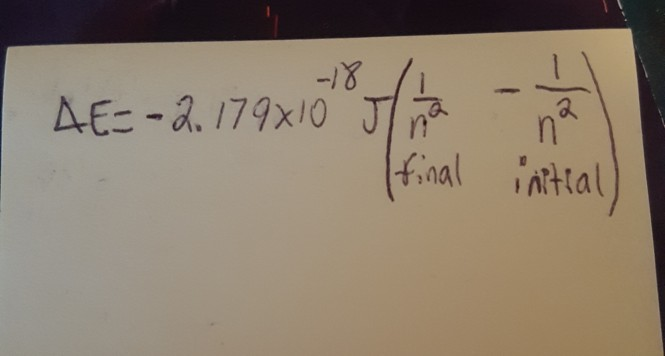 ΔE = -2.179x10⁻¹⁸ J (1/n² final - 1/n² initial)